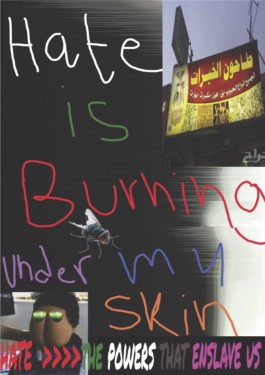 Hate
طاحون الخيرات
is
حراج
Burning
under my
skin
HATE >>>>THE POWERS THAT ENSLAVE US